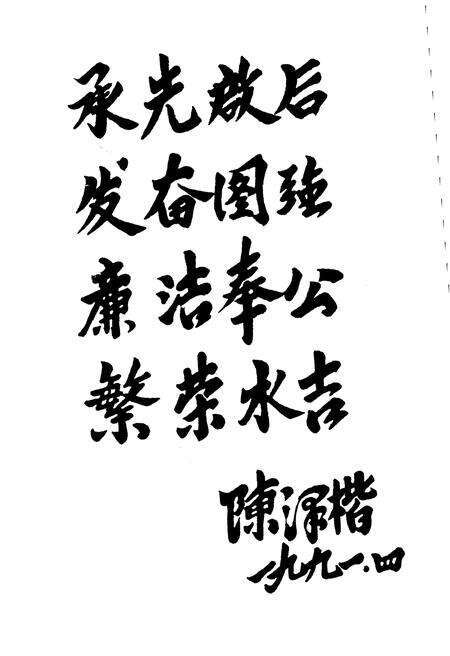 承先啟后
发奋图強
廉洁奉公
繁荣水吉
陳泽楷
一九九一.四